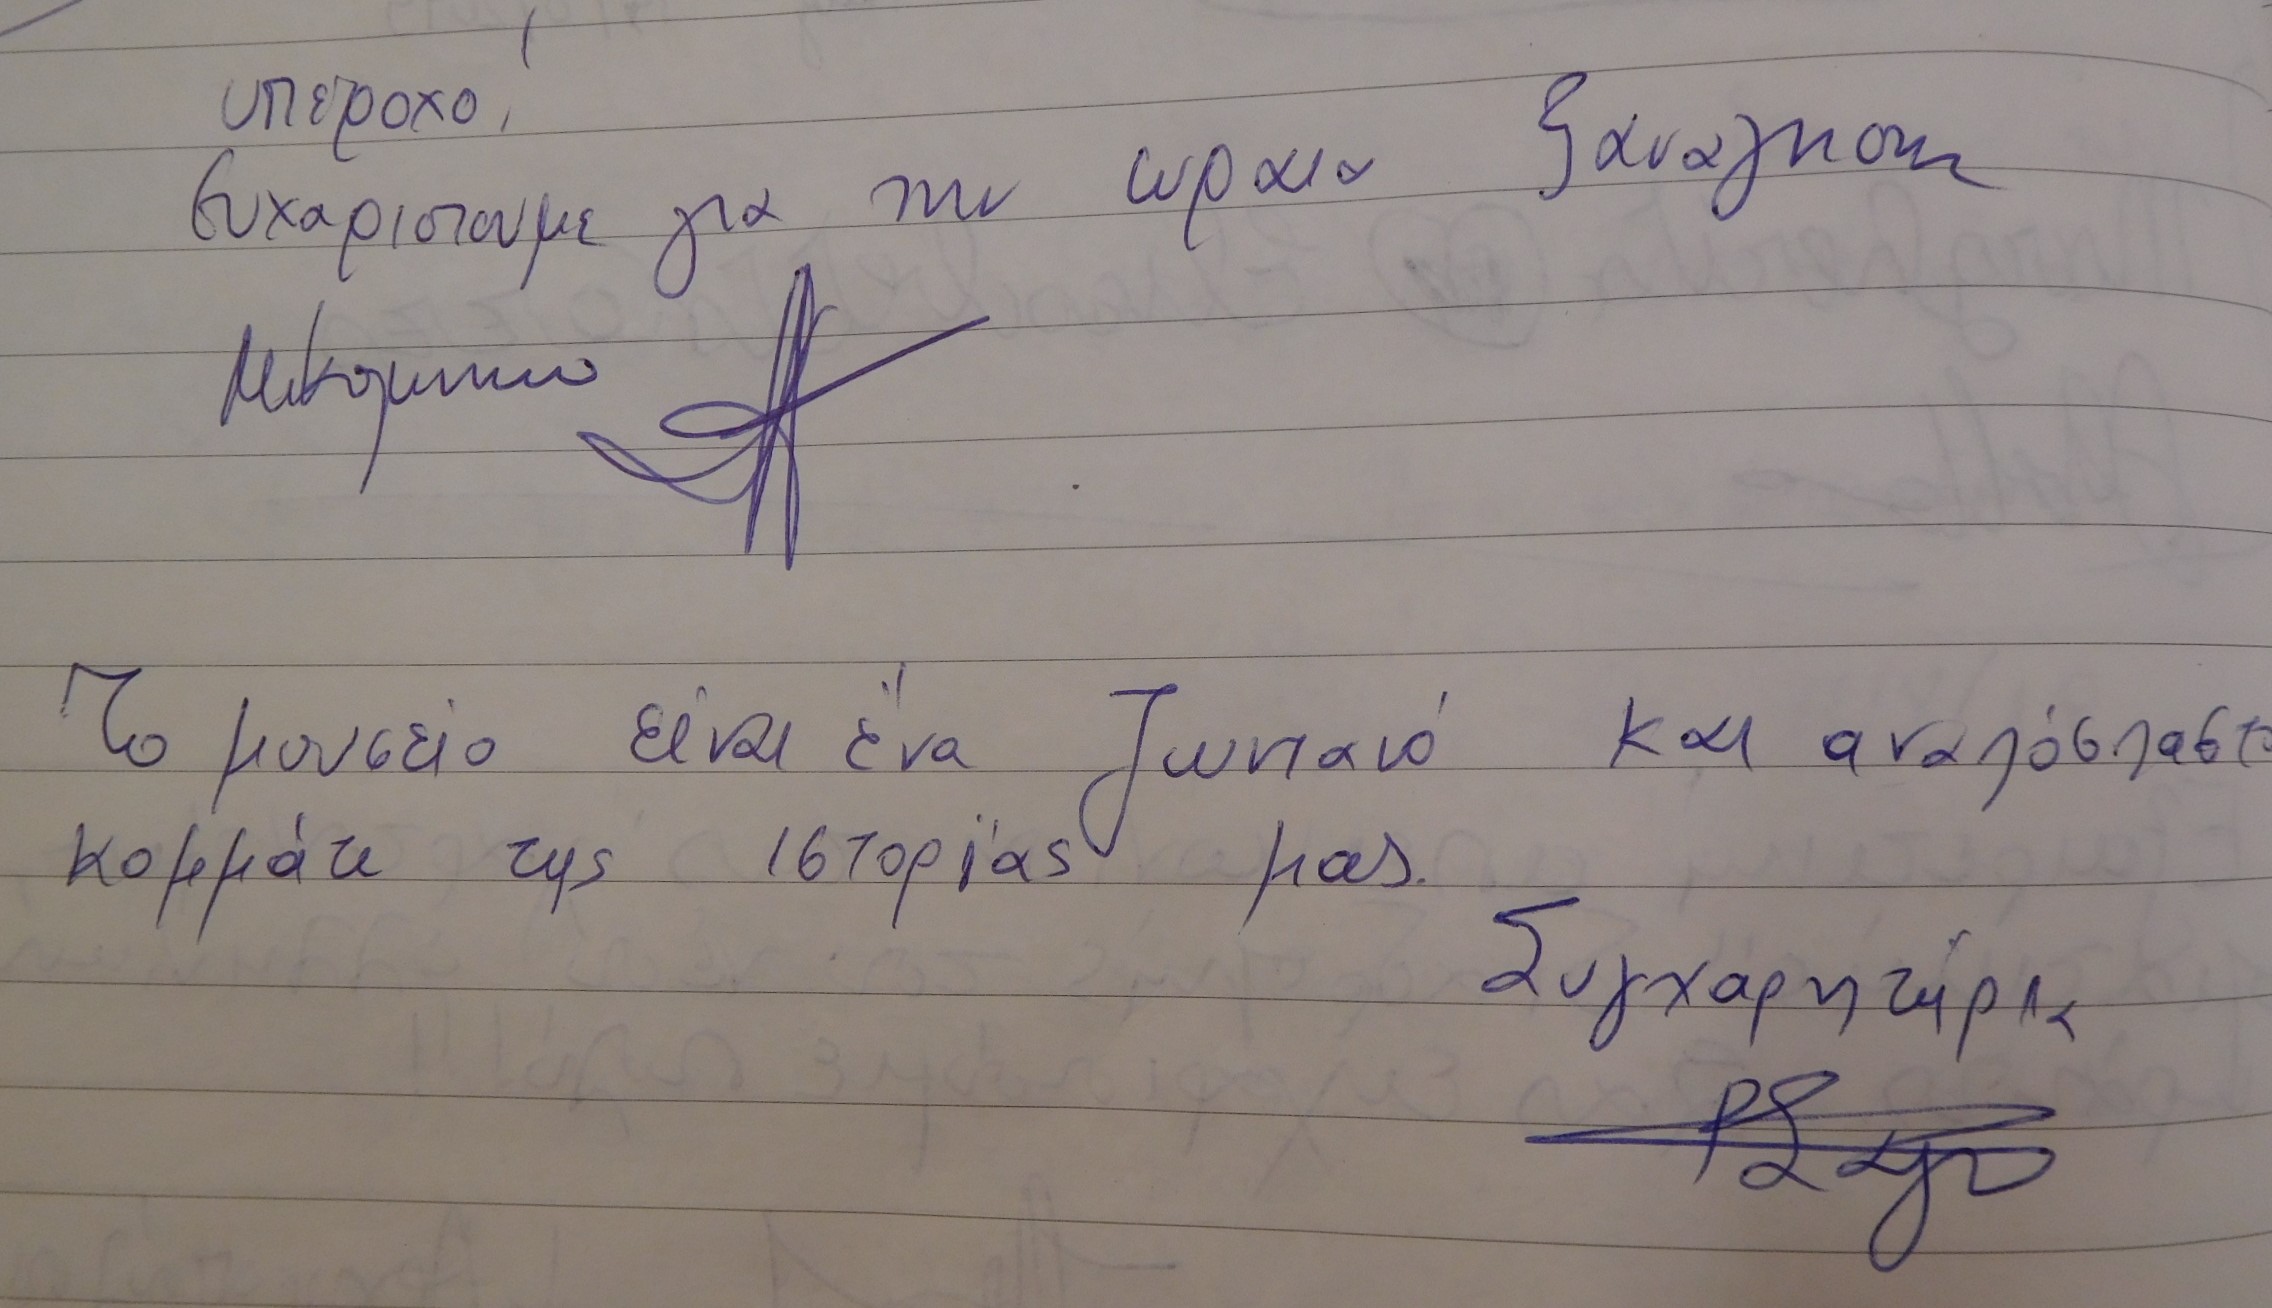 υπεροχο!
Ευχαριστουμε για την ωραια ξαναγηση
Το μουσείο είναι ένα ζωντανό και αναπόσπαστο
κομμάτι της ιστορίας μας.
Συγχαρητήρια